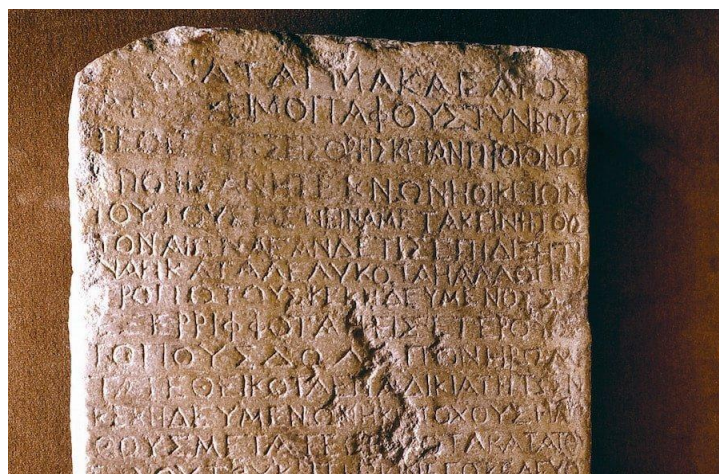 ΔΙΑΤΑΓΜΑ ΚΑΙΣΑΡΟΣ
ΑΡΕΣΚΕΙ ΜΟΙ ΤΑΦΟΥΣ ΤΥΝΒΟΥΣ
ΤΕ ΟΙΤΙΝΕΣ ΕΙΣ ΘΡΗΣΚΕΙΑΝ ΠΡΟΓΟΝΩΝ
ΕΠΟΙΗΣΑΝ Η ΤΕΚΝΩΝ Η ΟΙΚΕΙΩΝ
ΤΟΥΤΟΥΣ ΜΕΝΕΙΝ ΑΜΕΤΑΚΕΙΝΗΤΟΥΣ
ΤΟΝ ΑΙΩΝΑ ΕΑΝ ΔΕ ΤΙΣ ΕΠΙΔΙΞΗ ΤΙ
ΝΑ Η ΚΑΤΑΛΕΛΥΚΟΤΑ Η ΑΛΛΩ ΤΙΝΙ
ΤΡΟΠΩ ΤΟΥΣ ΚΕΚΗΔΕΥΜΕΝΟΥΣ
ΕΞΕΡΡΙΦΦΟΤΑ Η ΕΙΣ ΕΤΕΡΟΥΣ
ΤΟΠΟΥΣ ΔΩΛΩ ΠΟΝΗΡΩ ΜΕ
ΤΑΤΕΘΕΙΚΟΤΑ ΕΠ ΑΔΙΚΙΑ ΤΗ ΤΩΝ
ΚΕΚΗΔΕΥΜΕΝΩΝ Η ΚΑΤΟΧΟΥΣ Η ΛΙ
ΘΟΥΣ ΜΕΤΑΤΕΘΕΙΚΟΤΑ ΚΑΤΑ ΤΟΥ